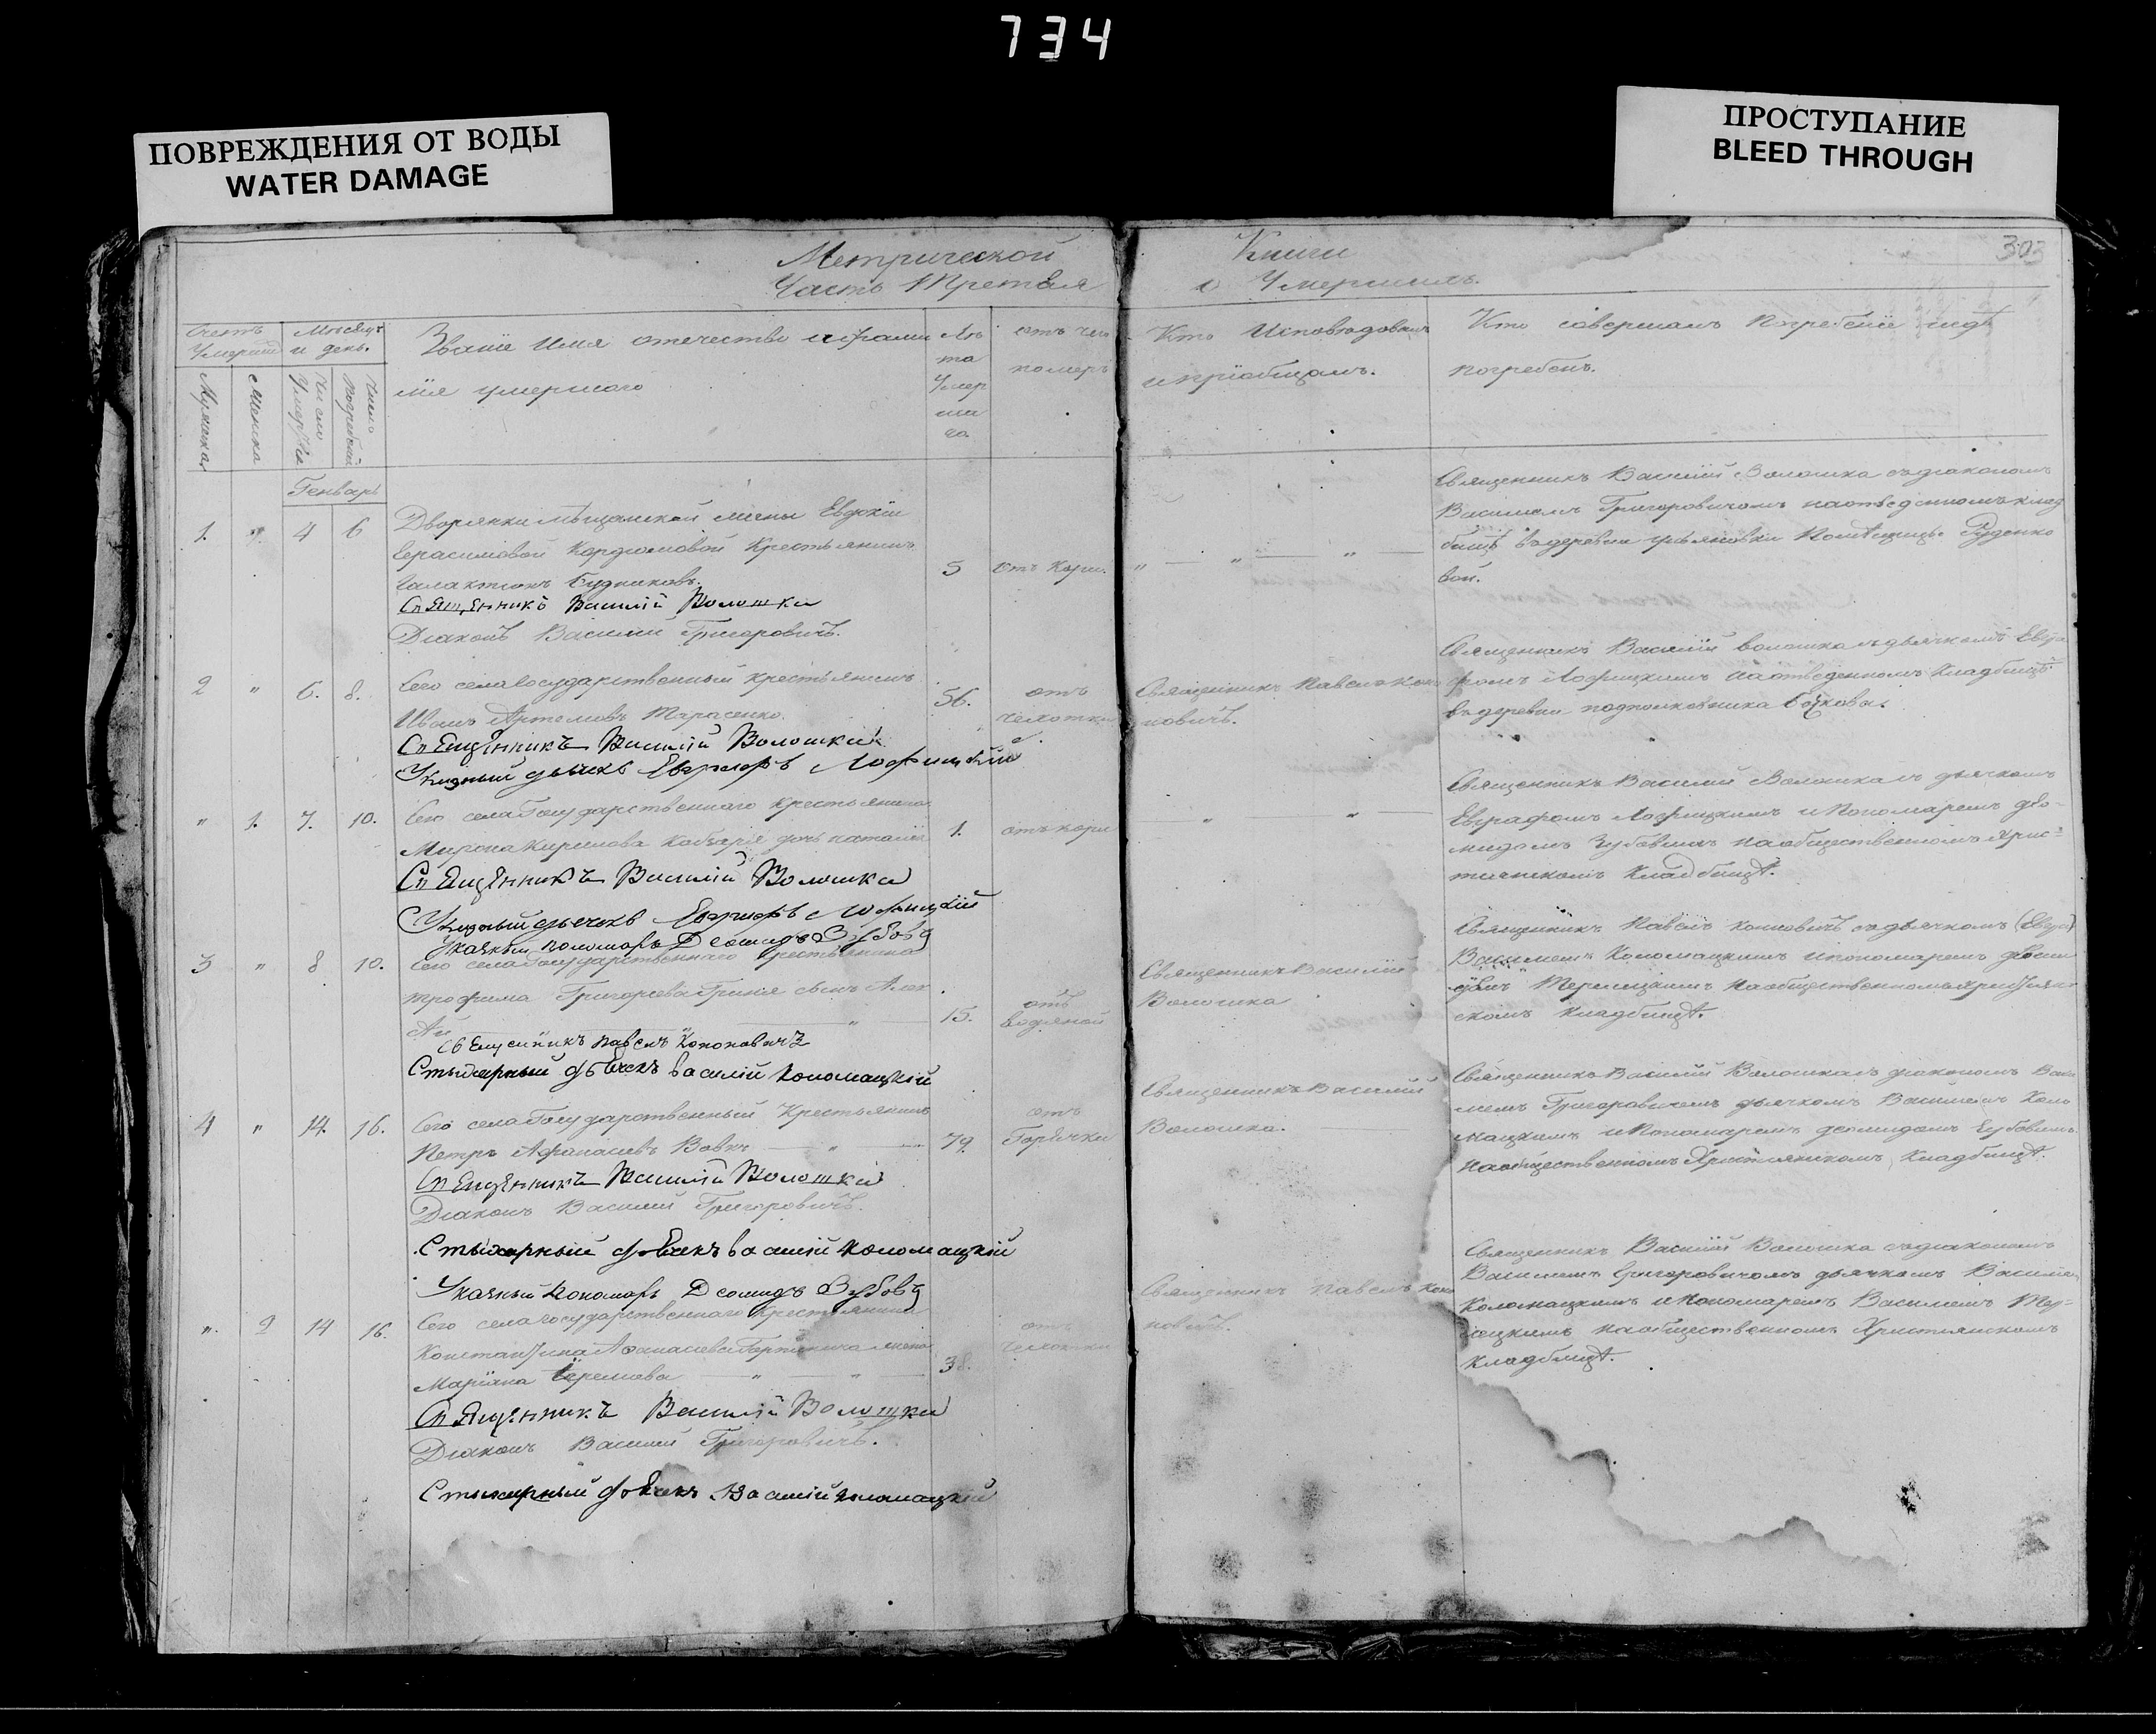 734
ПОВРЕЖДЕНИЯ ОТ ВОДЫ
WATER DAMAGE
ПРОСТУПАНИЕ
BLEED THROUGH
303
Метрической Книги
Часть Третья о Умершихъ.
Счетъ Умерш
Мѣсяцъ и день.
Мужеска
Женска
Число Умертвія
Число Погребенія
Званіе Имя отечество и фами
лія умершаго
Лѣ
та
Умер
ша
го.
отъ чего
померъ
Кто Исповѣдовалъ
и пріобщалъ.
Кто совершалъ Погребеніе и гдѣ
погребенъ.
Генварь
1. " 4 6
Дворянки Мѣщанской жены Евдокіи
Герасимовой Крестьянинъ
Галактіонъ Будниковъ.
5
отъ Кори.
Священникъ Василій Волошка
Діаконъ Василій Григоровичъ.
Священникъ Василій Волошка съ діакономъ
Василіемъ Григоровичомъ на отведенномъ клад
бищѣ въ деревни Помѣщицы Руденко
вой.
2 " 6. 8.
Сего села Государственный крестьянинъ
Иванъ Артемовъ Тарасенко.
56.
отъ
чехотки
Священникъ Павелъ Коно
новичъ.
Священникъ Василій Волошка
Указный дьячекъ Евграфъ Лофицкій
Священникъ Василій Волошка съ дьячкомъ Евгра
фомъ Лофицкимъ на отведенномъ Кладбищѣ
въ деревни подполковника
" 1. 7. 10.
Сего села Государственнаго крестьянина
Мирона Кирилова дочь Наталія
1.
отъ кори
Священникъ Василій Волошка
Указный дьячекъ Евграфъ Лофицкій
Указный пономарь Деомидъ Зубовъ
Священникъ Василій Волошка съ дьячкомъ
Евграфомъ Лофицкимъ и Пономаремъ Део-
мидомъ Зубовымъ на общественномъ Хрис-
тіянскомъ Кладбищѣ.
3 " 8 10.
Сего села Государственнаго крестьянина
Трофима Григорьева сынъ Алек
15.
отъ
водяной
Священникъ Василій
Волошка
Священникъ Павелъ Кононовичъ
Стихарный дьячекъ Василій Коломацкій
Священникъ Павелъ Кононовичъ съ дьячкомъ
Василіемъ Коломацкимъ и пономаремъ
на общественномъ Христіян-
скомъ кладбищѣ.
4 " 14. 16.
Сего села Государственный Крестьянинъ
Петръ Афанасьевъ Вовкъ
79.
отъ
Горячки
Священникъ Василій
Волошка.
Священникъ Василій Волошка
Діаконъ Василій Григоровичъ.
Стихарный дьячекъ Василій Коломацкій
Указный пономарь Деомидъ Зубовъ
Священникъ Василій Волошка съ діакономъ Васи
лемъ Григоровичемъ дьячкомъ Василіемъ Коло
мацкимъ и Пономаремъ Деомидомъ Зубовымъ
на общественномъ Христіянскомъ Кладбищѣ.
". 2 14 16.
Сего села государственнаго крестьянина
Константина Афанасьева жена
Маріяна
38.
отъ
чехотки
Священникъ Павелъ Коно
новичъ.
Священникъ Василій Волошка
Діаконъ Василій Григоровичъ.
Стихарный дьячекъ Василій Коломацкій
Священникъ Василій Волошка съ діакономъ
Василіемъ Григоровичомъ дьячкомъ Василіе
Коломацкимъ и Пономаремъ Василіемъ
на общественномъ Христіянскомъ
Кладбищѣ.